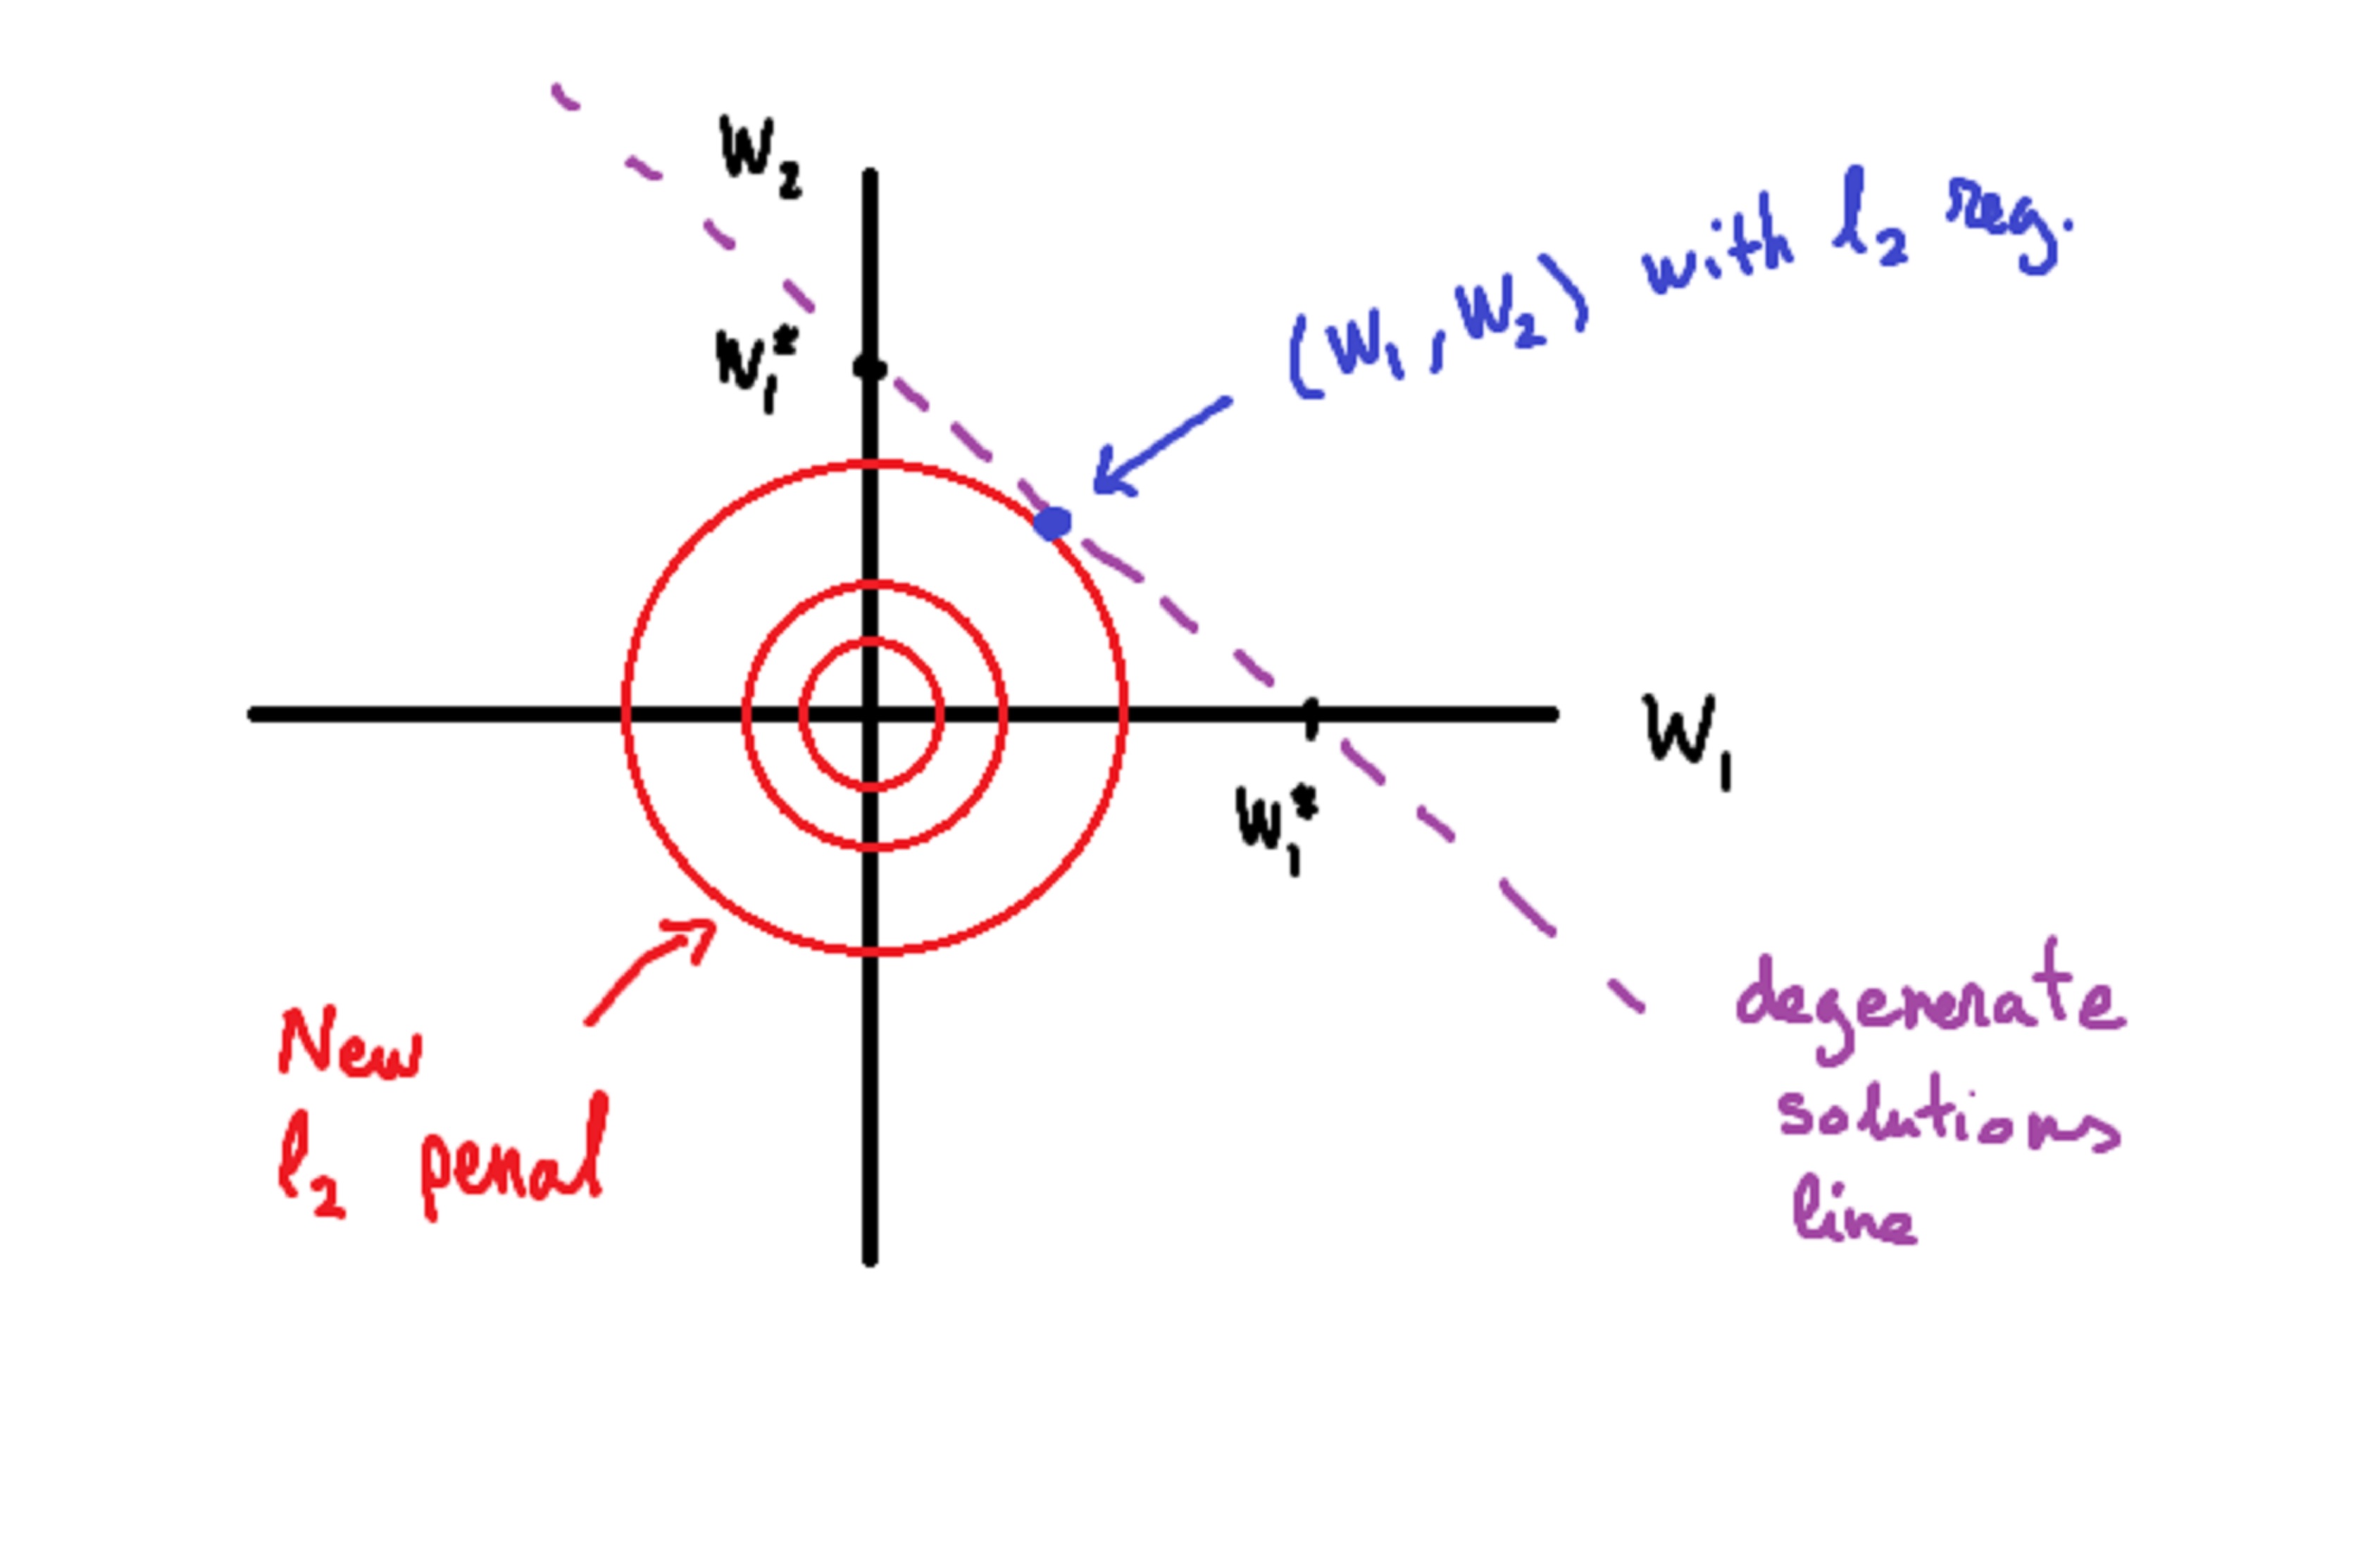 W₂
(W₁, W₂) with l₂ reg.
W₁*
W₁
W₁*
New
l₂ penal
degenerate
solutions
line